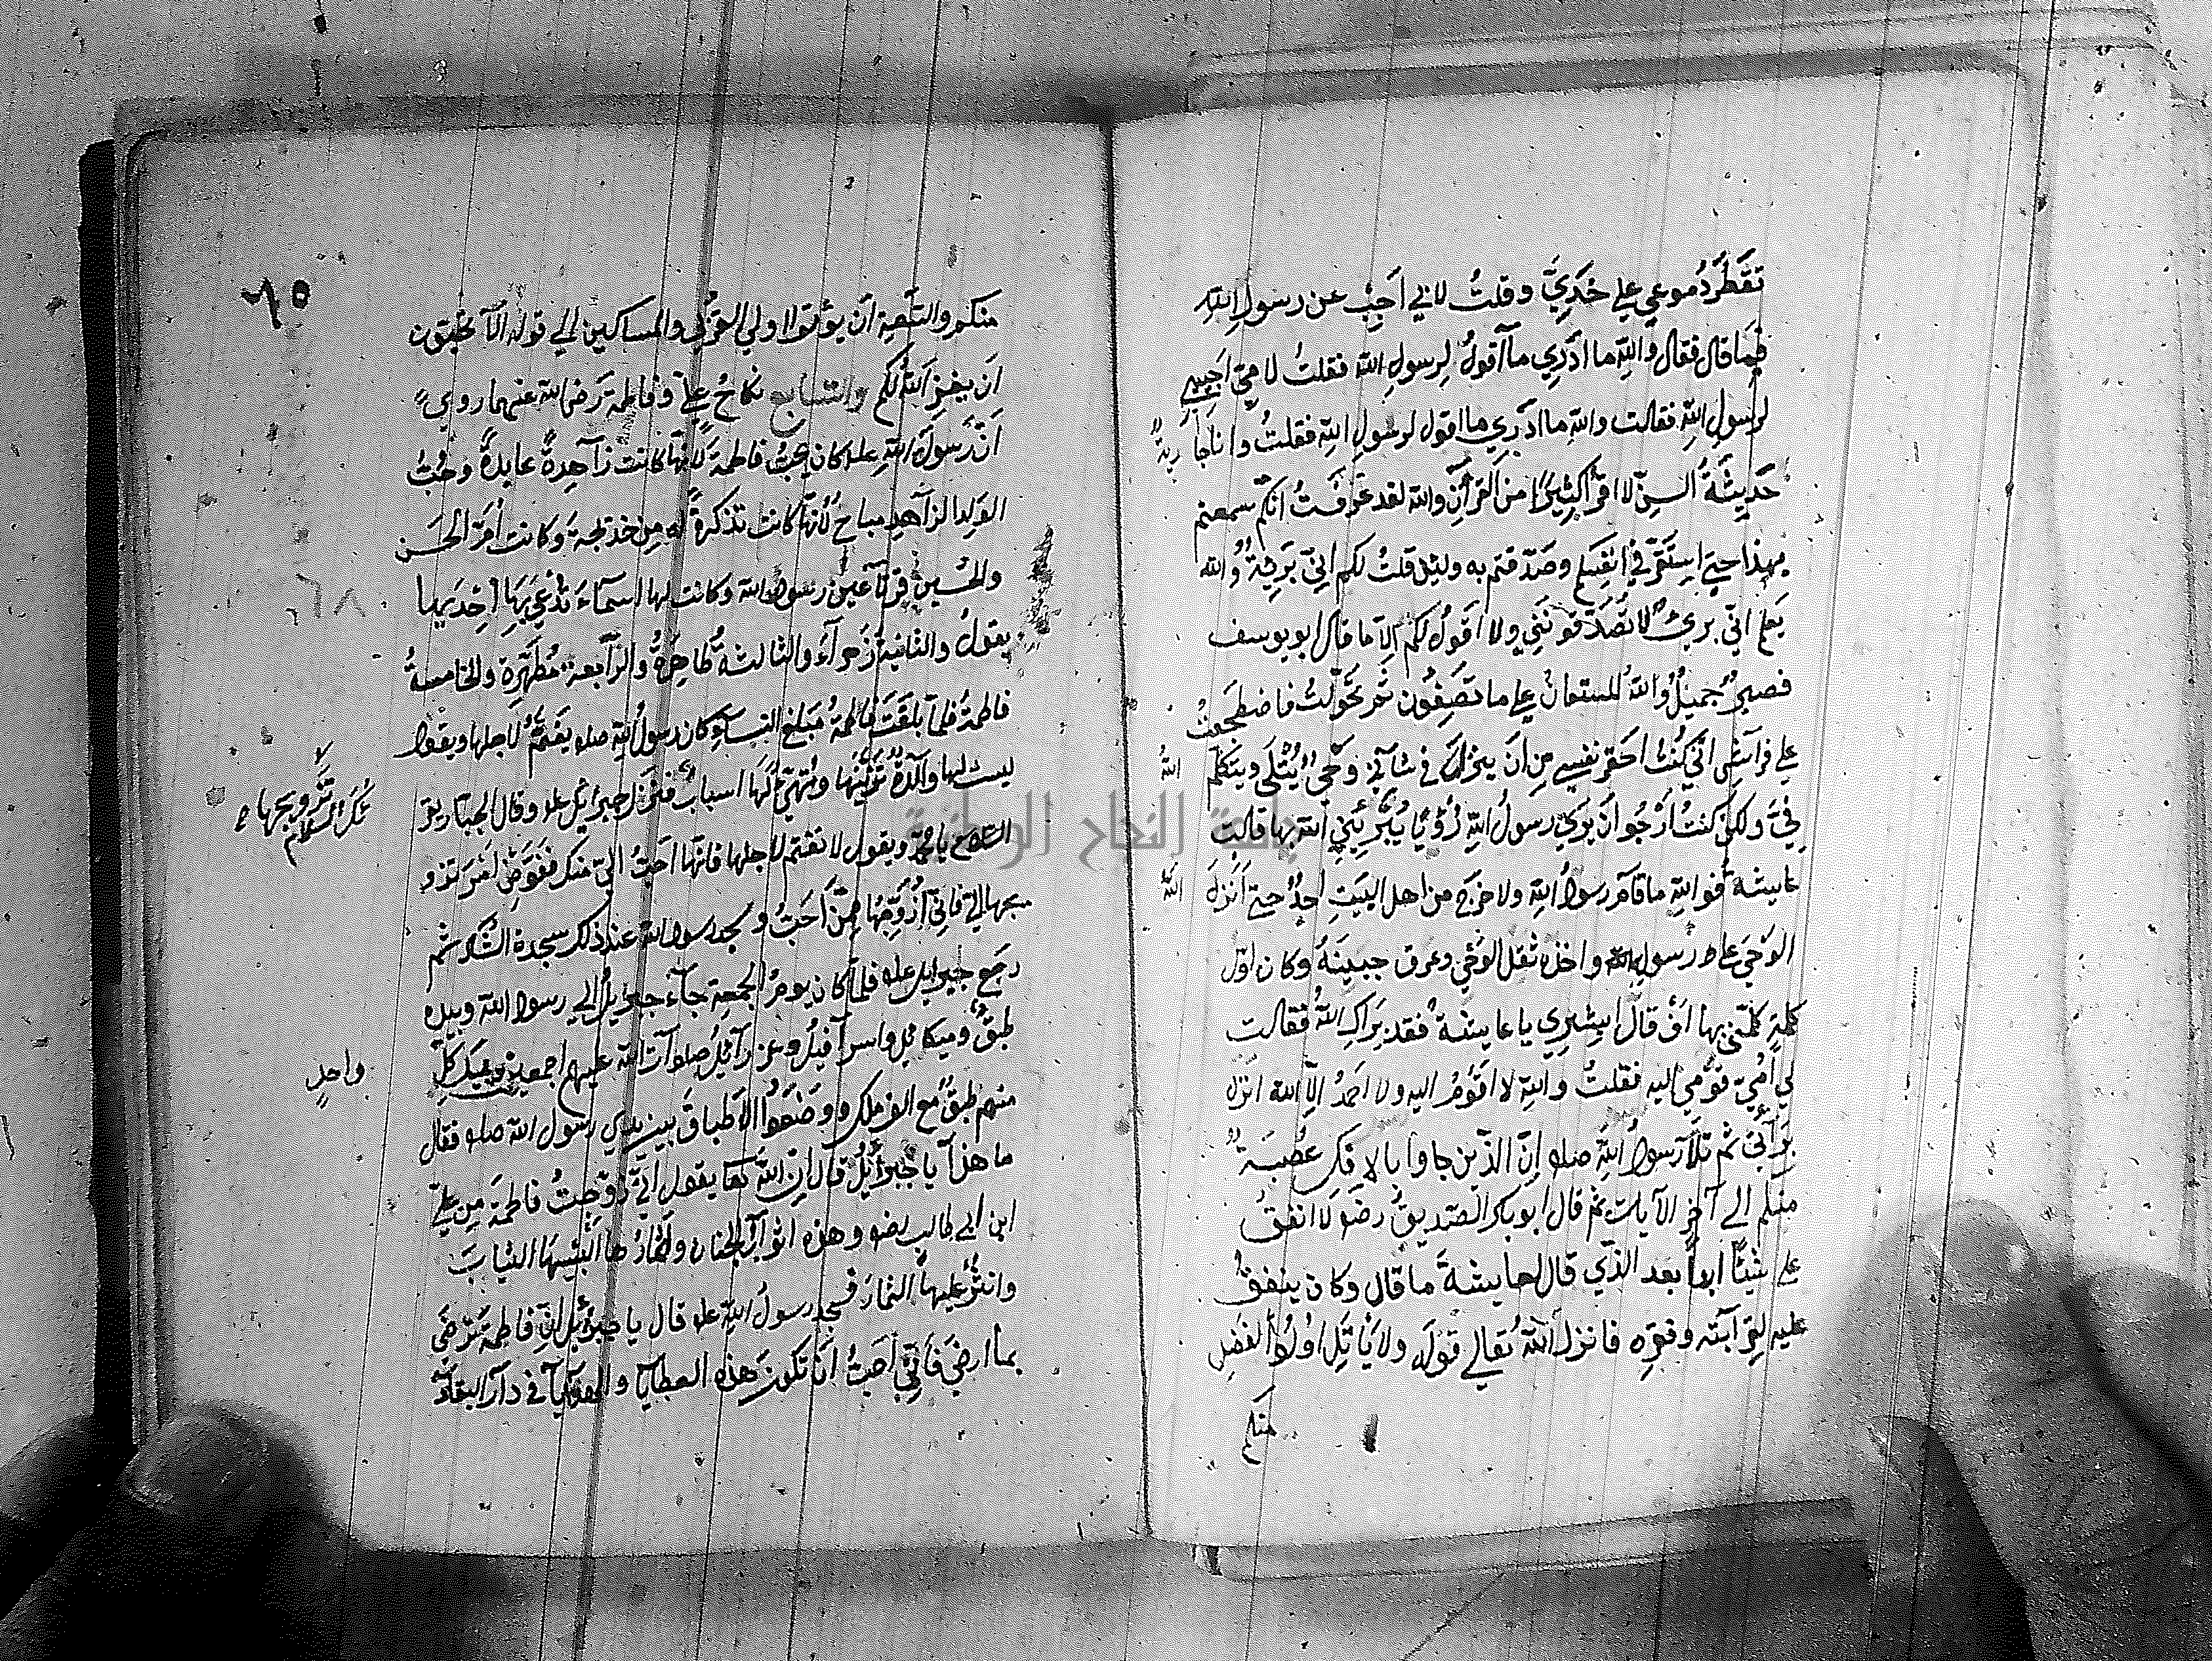 تقطر دموعي علي خدي وقلت لابي اجب عن رسول الله
فيما قال فقال والله ما ادري ما اقول لرسول الله فقلت لامي اجيبي
لرسول الله فقالت والله ما ادري ما اقول لرسول الله فقلت وانا جارية
حديثة السن لا اقرأ كثيرا من القرآن والله لقد عرفت انكم سمعتم
بهذا حتي استقر في انفسكم وصدقتم به ولئن قلت لكم اني بريئة والله
يعلم اني بريئ لا تصدقونني ولا اقول لكم الا ما قال ابو يوسف
فصبر جميل والله المستعان علي ما تصفون ثم تحولت فاضطجعت
علي فراشي اني كنت احقر نفسي من ان ينزل في شأني وحي يتلى ويتكلم الله
في ولكن كنت ارجو ان يري رسول الله رؤيا يبرئني الله بها قالت
عايشة فو الله ما قام رسول الله ولا خرج من اهل البيت احد حتي انزل الله
الوحي علي رسول الله واخذه ثقل الوحي وعرق جبينه وكان اول
كلمة كلمتني بها ان قال ابشري يا عايشة فقد براك الله فقالت
لي امي قومي اليه فقلت والله لا اقوم اليه ولا احمد الا الله انزل
برآئتي ثم تلا رسول الله صلو ان الذين جاوا بالافك عصبة
منكم الي آخر الآيات ثم قال ابو بكر الصديق رضو لا انفق
علي شيئا ابدا بعد الذي قال لعايشة ما قال وكان ينفق
عليه لقرابته وفقره فانزل الله تعالي قوله ولا يأتل اولوا الفضل
منكم
٦٥
منكم والسعة ان يؤتوا اولي القربي والمساكين الي قوله الا تحبون
ان يغفر الله لكم والتاسع نكاح علي وفاطمة رضي الله عنهما روي
ان رسول الله علم كان يحب فاطمة لانها كانت زاهدة عابدة وحب
الولد الزاهد مباح لانها كانت تذكرة له من خديجة وكانت ام الحسن
والحسين قرتا عين رسول الله وكانت لها اسماء تدعي بها احديها
بتول والثانية زهرآء والثالثة طاهرة والرابعة مطهرة والخامسة
فاطمة فلما بلغت فاطمة مبلغ النساء كان رسول الله صلو يغتم لاجلها ويقول
ليست لها والدة تزينها وتهيئ لها اسباب فنزل جبرائيل علم وقال الجبار يقر
لتزويجها
ئك السلام
السلام يا محمد ويقول لا تغتم لاجلها فانها احب الي منك ففوض امر تزو
يجها الي فاني ازوجها ممن احب وسجد رسول الله عند ذلك سجدة الشكر ثم
رجع جبرايل علم فلما كان يوم الجمعة جآء جبرايل الي رسول الله وبيده
طبق وميكائل واسرآفيل وعزرآئيل صلوات الله عليهم اجمعين وبيد كل
واحد
منهم طبق مع الف ملك ووضعوا الاطباق بين يدي رسول الله صلو فقال
ما هذا يا جبرائل قال ان الله تعا يقول اني زوجت فاطمة من علي
ابن ابي طالب رضو وهذه اثواب الجنان واثمارها البسها الثياب
وانثر عليها الثمار فسجد رسول الله علم قال يا جبرئيل ان فاطمة ترضي
بما ارضي فاني احب ان تكون هذه العطايا والهدايا في دار البقاء
جامعة النجاح الوطنية